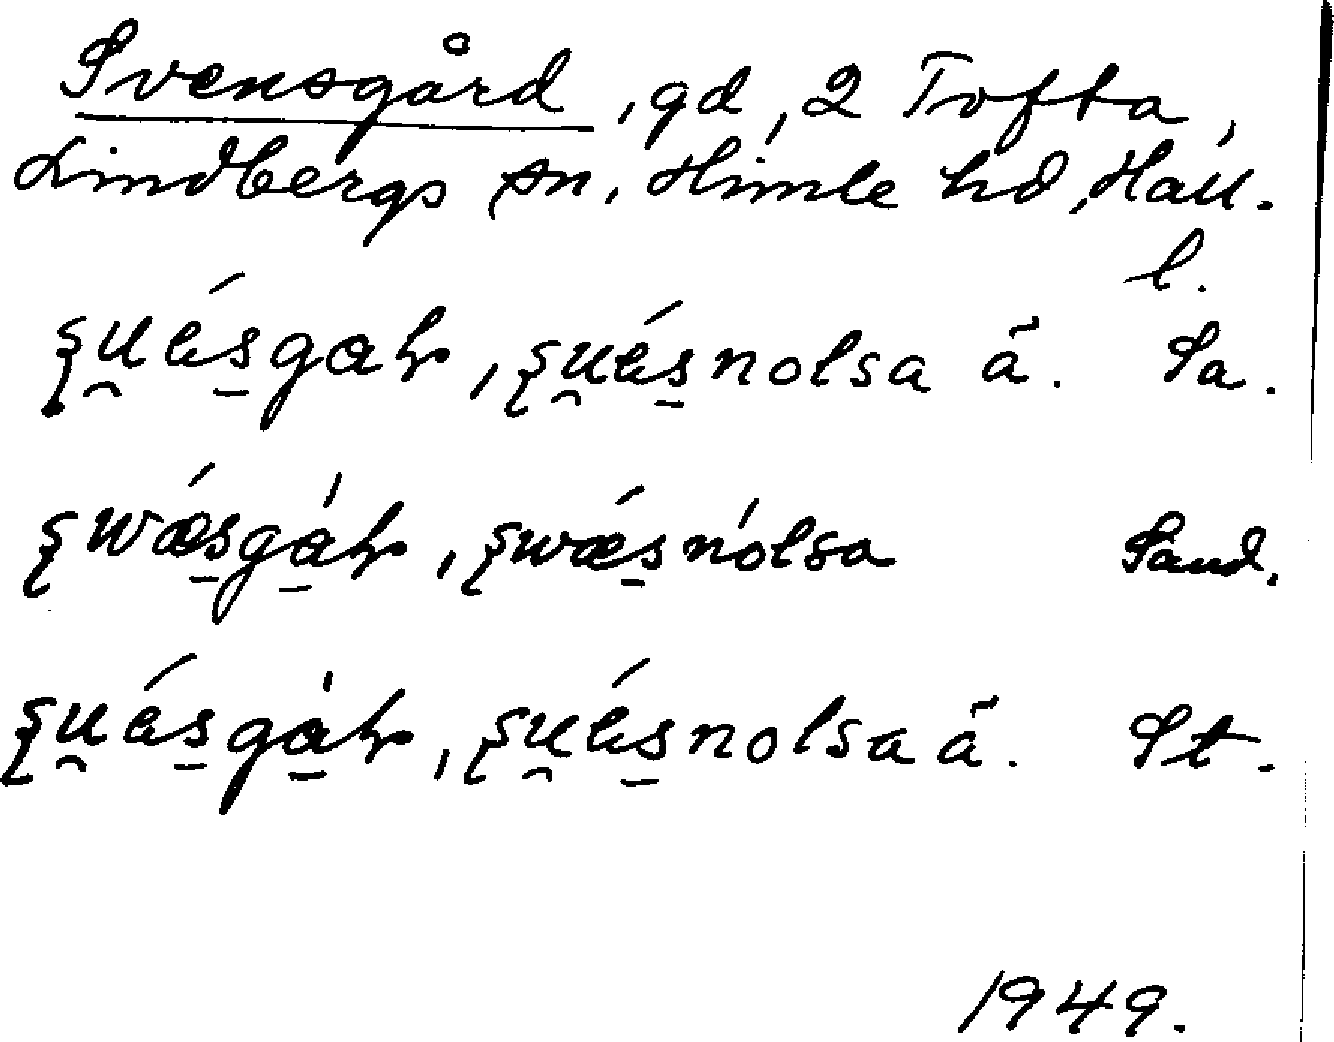 Svensgård, gd, 2 Tofta,
Lindbergs sn, Himle hd, Hall.
l.
ʂu̯ésgaɦr, ʂu̯ésnolsa ã. Sa.
ʂwǽsgàɦr, ʂwǽsnòlsa Sand.
ʂu̯ésgàɦr, ʂu̯ésnolsa ã. St.
1949.